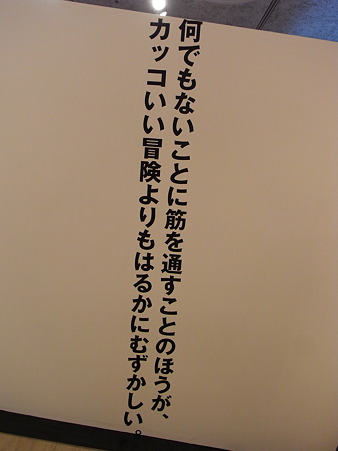 何でもないことに筋を通すことのほうが、
カッコいい冒険よりもはるかにむずかしい。